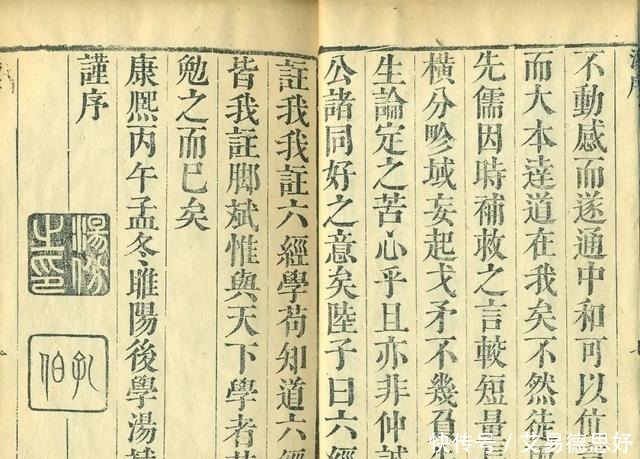 不動感而遂通中和可以位
而大本達道在我矣不然徒
先儒因時補救之言較短量長
橫分畛域妄起戈矛不幾負
生論定之苦心乎且亦非仲誠
公諸同好之意矣陸子曰六經
註我我註六經學苟知道六經
皆我註脚斌惟與天下學者
勉之而已矣
康熙丙午孟冬睢陽後學湯斌
謹序
湯斌之印
孔伯
快传号/艾易德思妤